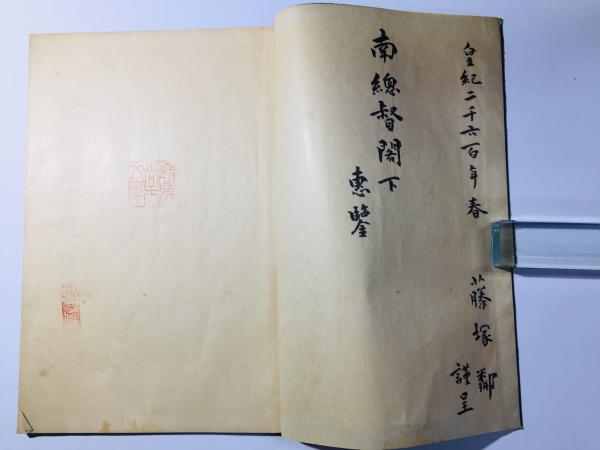 皇紀二千六百年春
藤塚鄰
謹呈
南總督閣下
惠鑒